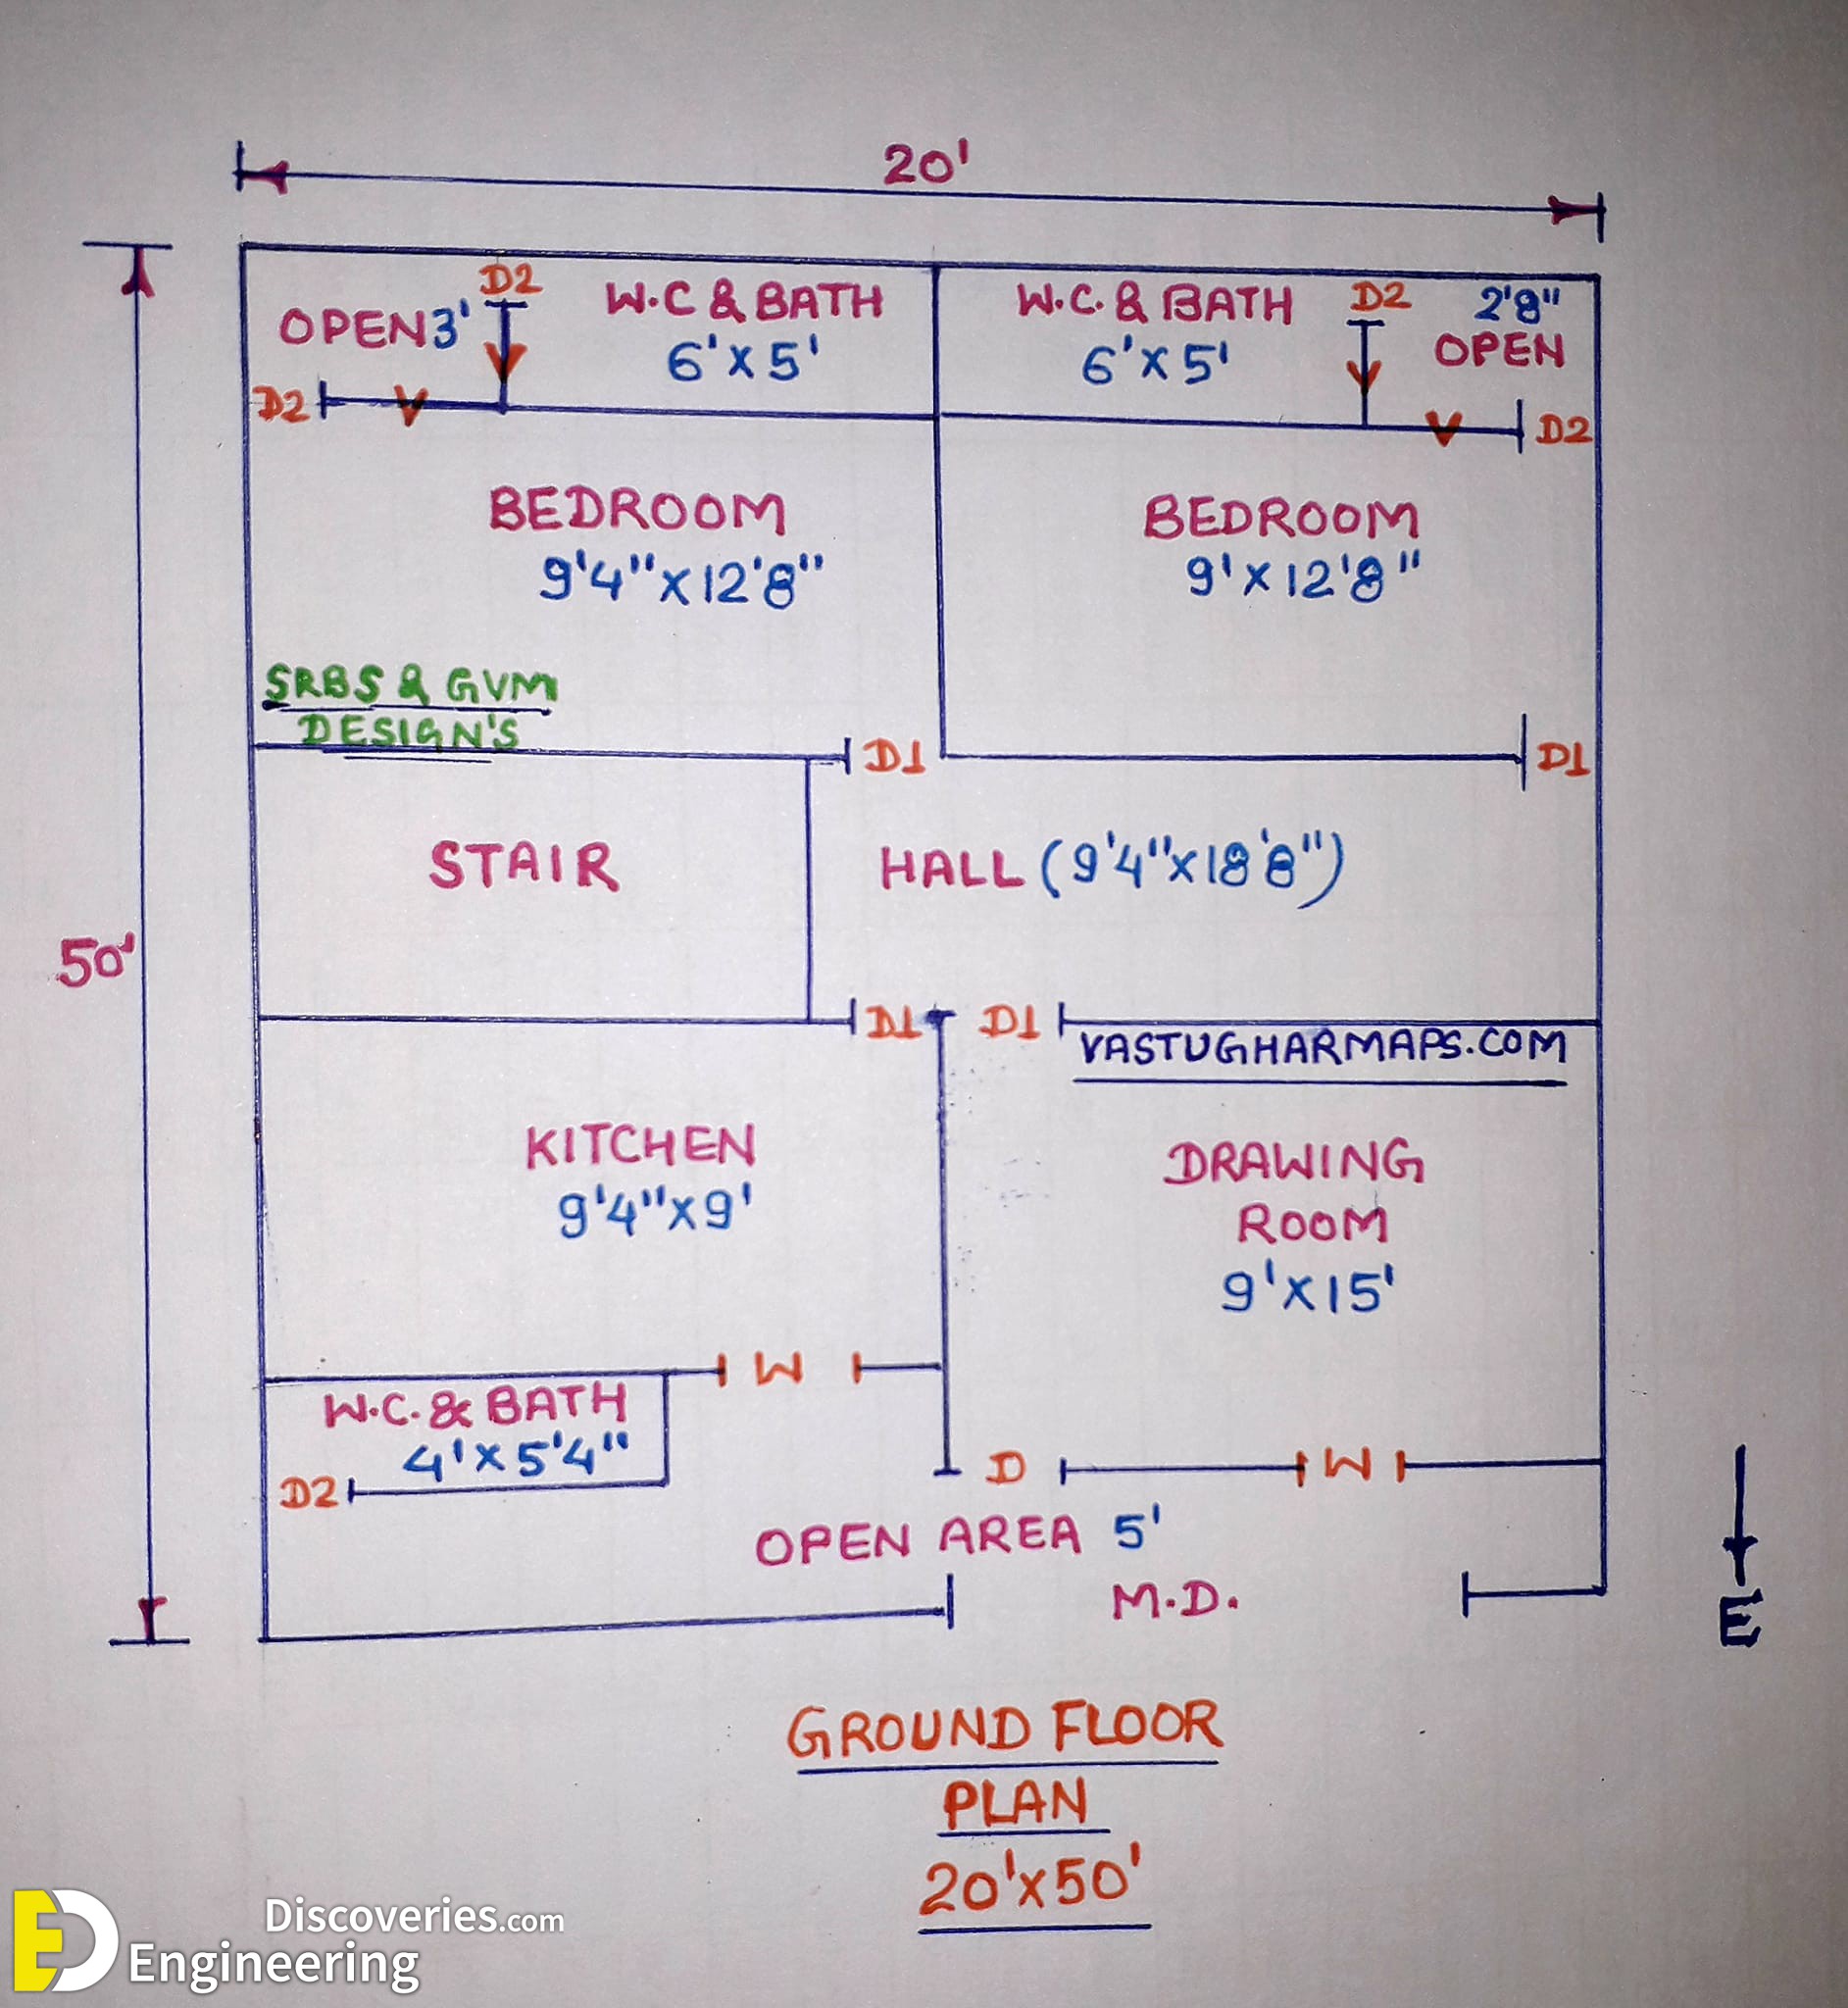 20'
D2
OPEN 3'
W.C & BATH
6'X5'
W.C. & BATH
6'X5'
D2
2'8"
OPEN
D2
V
V
D2
BEDROOM
9'4"X12'8"
BEDROOM
9'X12'8"
SRBS & GVM
DESIGN'S
D1
D1
STAIR
HALL (9'4"X18'8")
50'
D1
D1
VASTUGHARMAPS.COM
KITCHEN
9'4"X9'
DRAWING
ROOM
9'X15'
W
W.C. & BATH
4'X5'4"
D2
D
W
OPEN AREA 5'
M.D.
E
GROUND FLOOR
PLAN
20'X50'
ED
Discoveries.com
Engineering